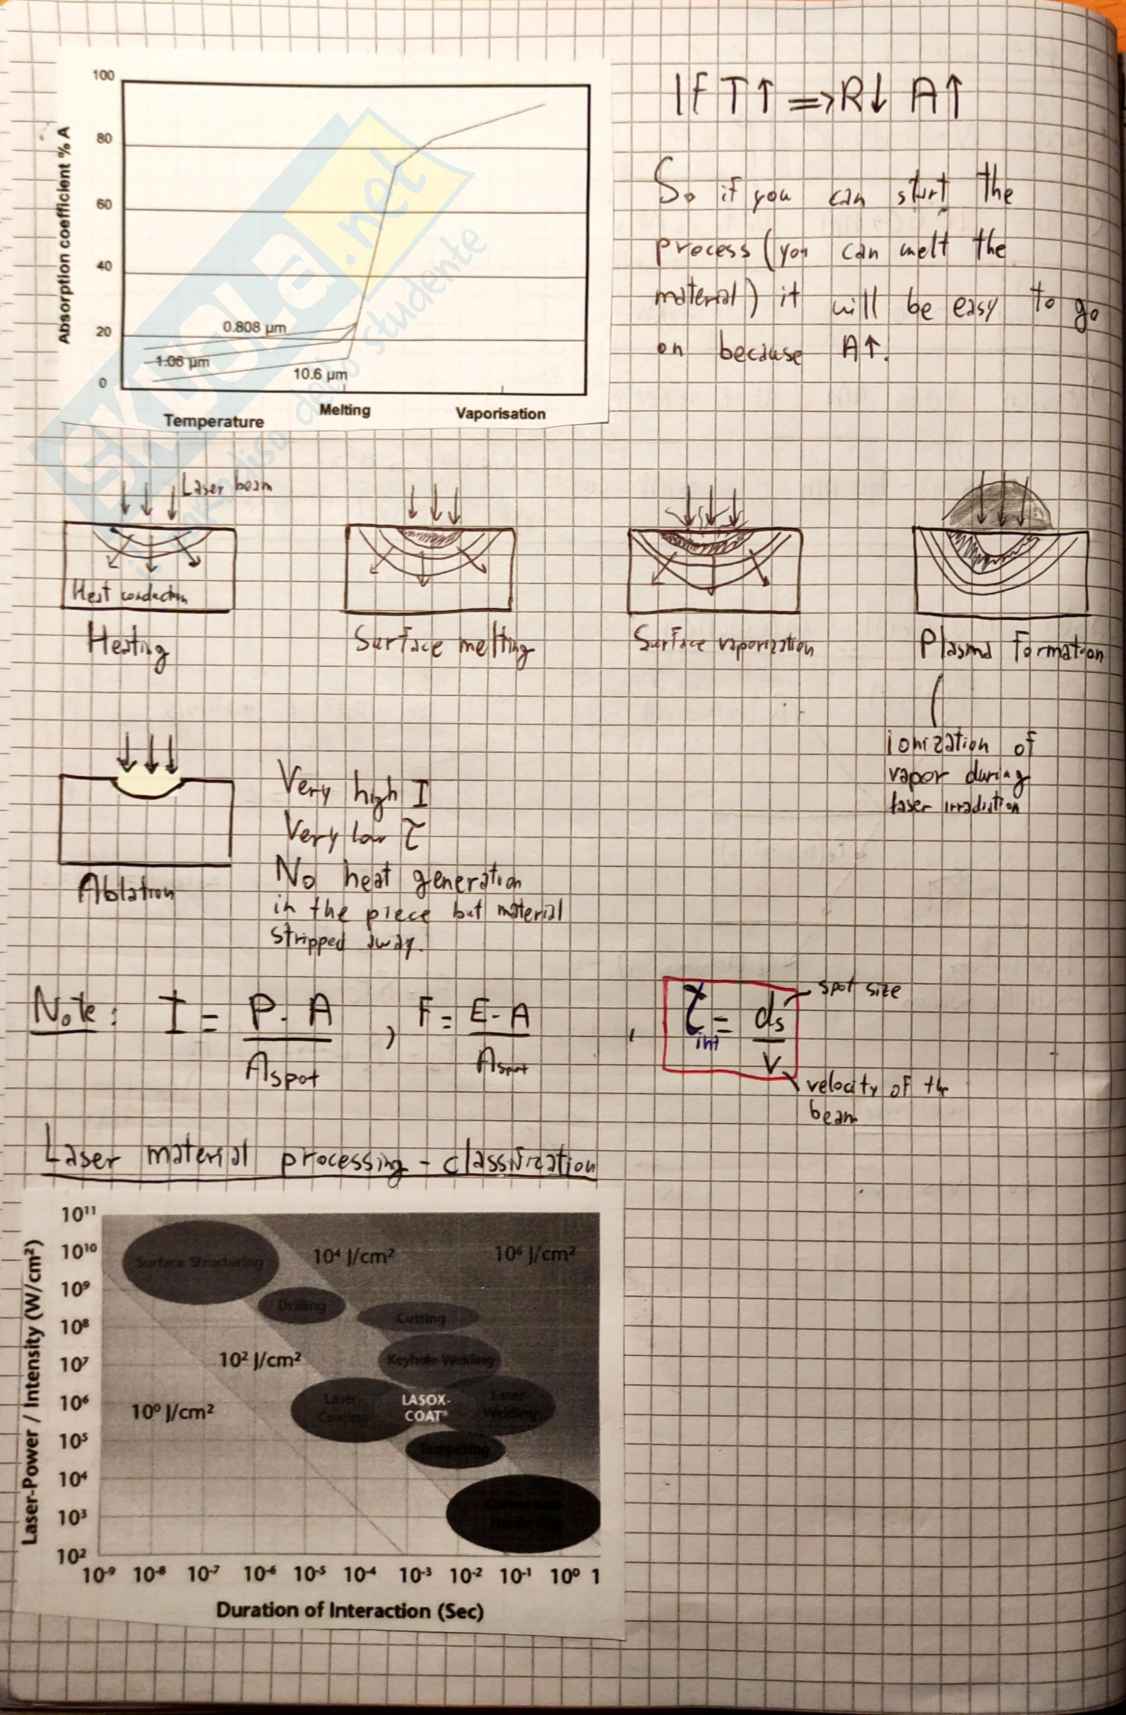 100
80
60
40
20
0
Absorption coefficient % A
0.808 µm
1.06 µm
10.6 µm
Temperature
Melting
Vaporisation
SKUOLA.net
IF T↑ ⇒ R↓ A↑
So if you can start the
process (you can melt the
material) it will be easy to go
on because A↑.
Laser beam
Heat conduction
Heating
Surface melting
Surface vaporization
Plasma formation
ionization of
vapor during
laser irradiation
Ablation
Very high I
Very low τ
No heat generation
in the piece but material
stripped away.
Note: I = P·A / Aspot , F = E·A / Aspot , τint = ds / v
spot size
velocity of the
beam
Laser material processing - classification
Laser-Power / Intensity (W/cm²)
10¹¹
10¹⁰
10⁹
10⁸
10⁷
10⁶
10⁵
10⁴
10³
10²
Surface Structuring
10⁴ J/cm²
10⁶ J/cm²
Drilling
Cutting
10² J/cm²
Keyhole Welding
10⁰ J/cm²
LASOX-
COAT®
Laser
Welding
Tempering
10⁻⁹ 10⁻⁸ 10⁻⁷ 10⁻⁶ 10⁻⁵ 10⁻⁴ 10⁻³ 10⁻² 10⁻¹ 10⁰ 1
Duration of Interaction (Sec)